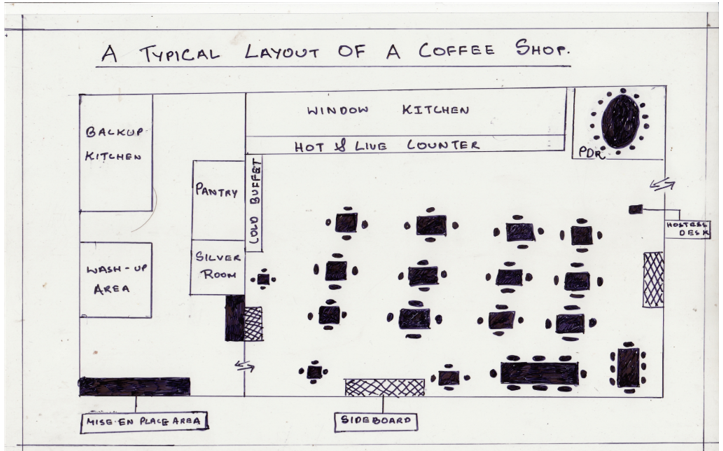 A TYPICAL LAYOUT OF A COFFEE SHOP.
WINDOW KITCHEN
HOT & LIVE COUNTER
BACKUP
KITCHEN
PDR
PANTRY
COLD BUFFET
HOSTESS
DESK
SILVER
ROOM
WASH-UP
AREA
MISE-EN PLACE AREA
SIDEBOARD